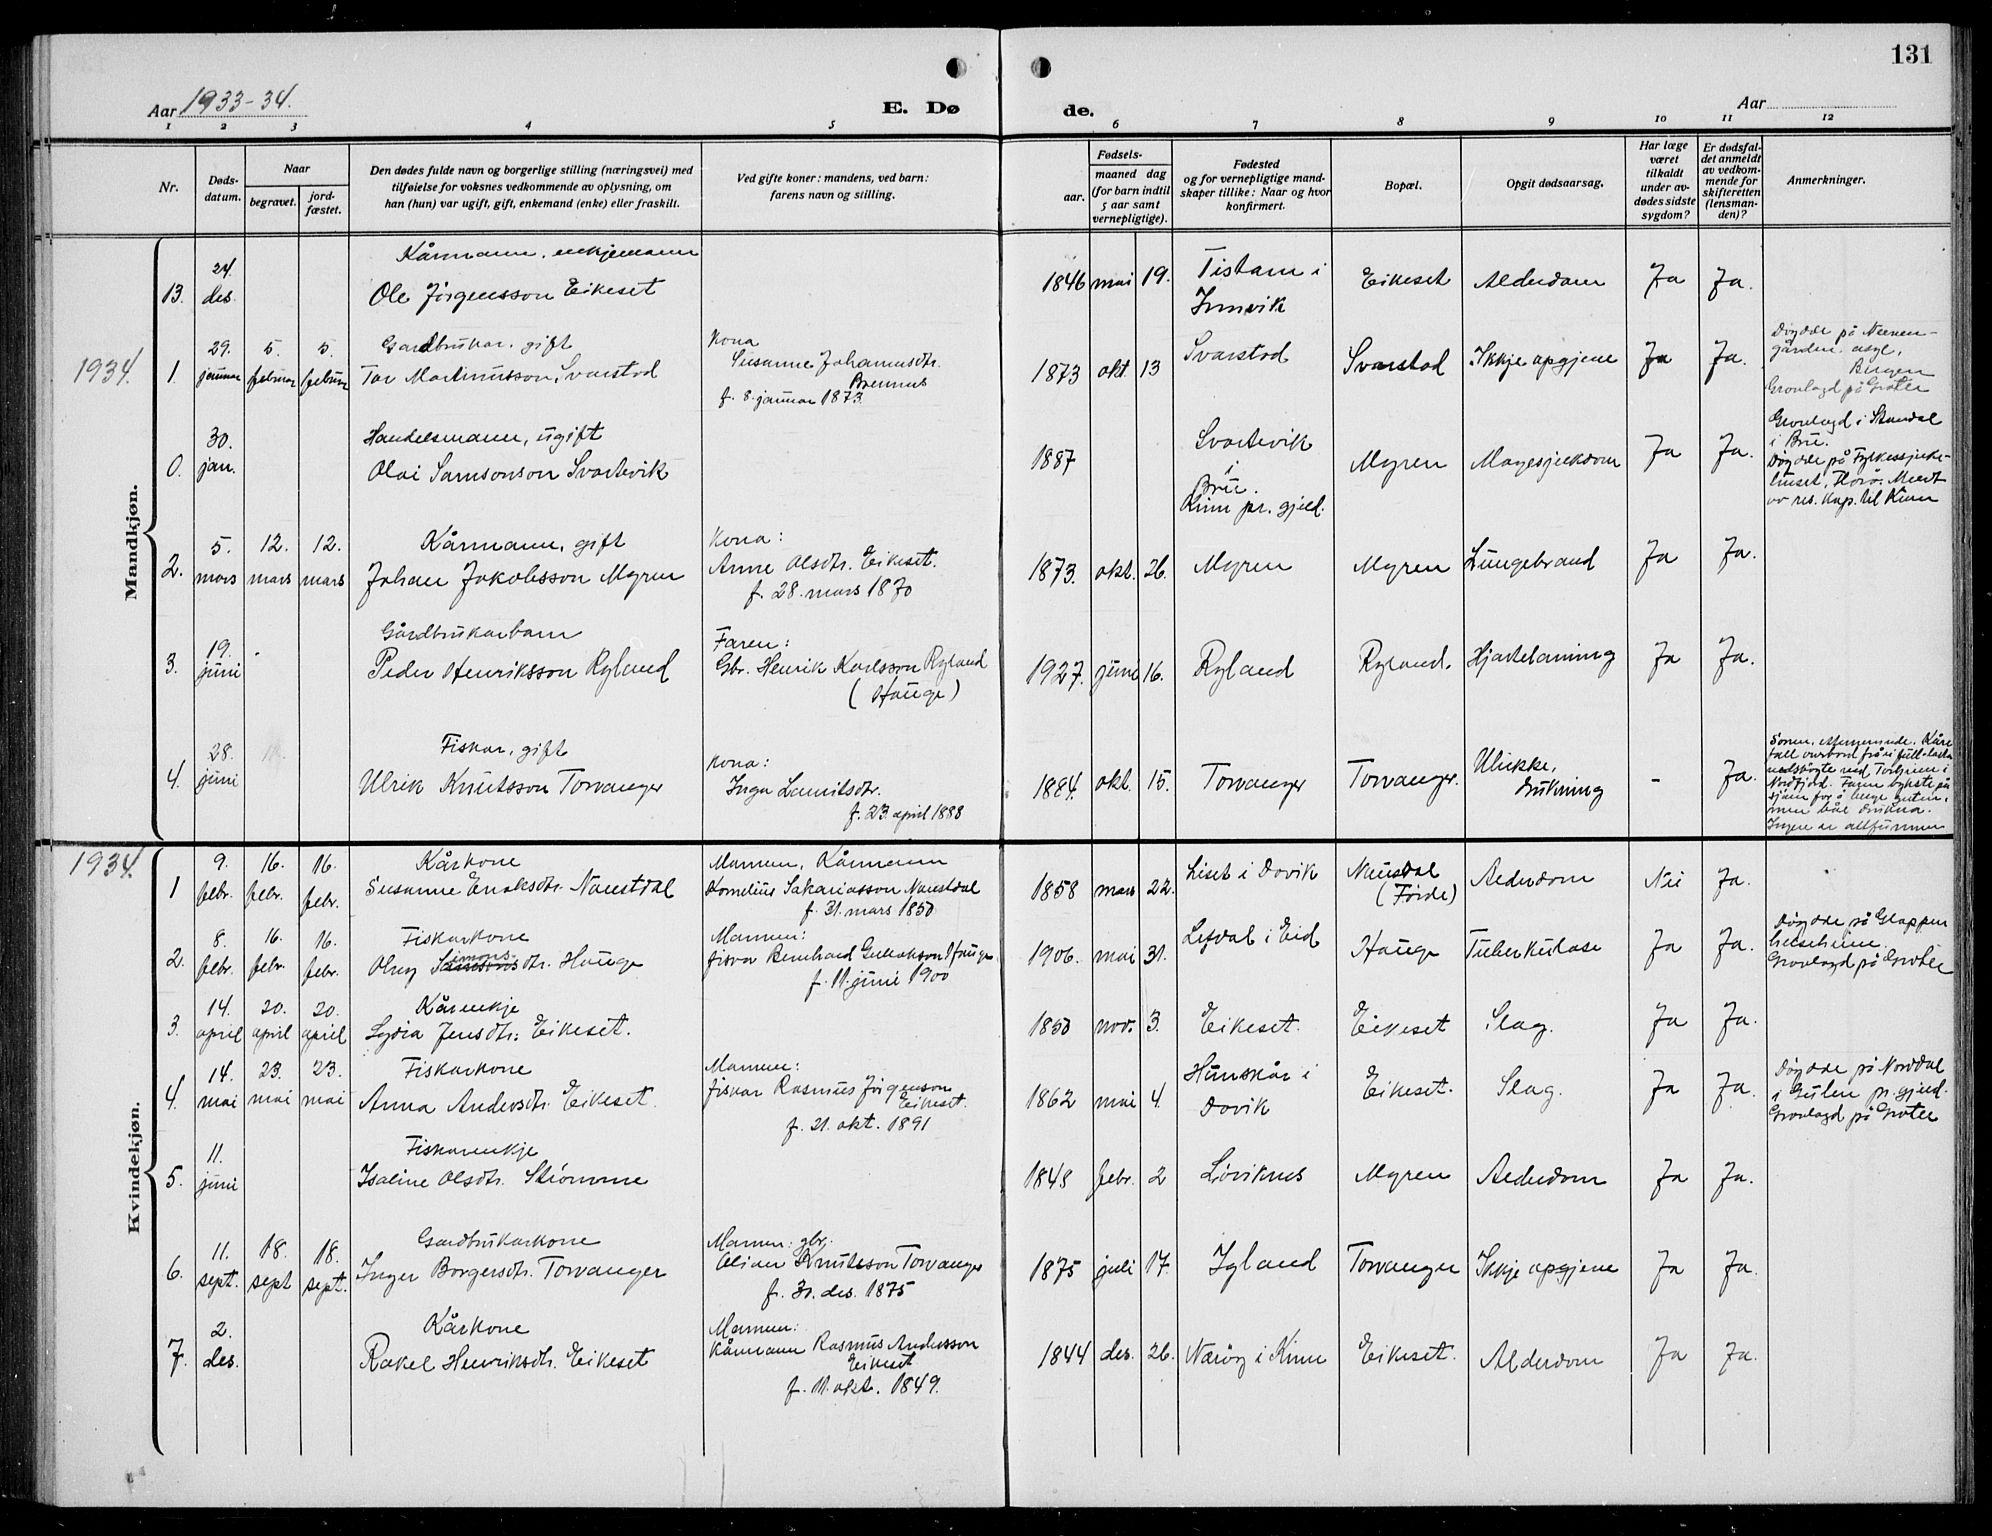 131
Aar 1933-34.
E. Dø
de.
Aar
1 2 3 4 5 6 7 8 9 10 11 12
Nr.
Døds-
datum.
Naar
begravet.
jord-
fæstet.
Den dødes fulde navn og borgerlige stilling (næringsvei) med
tilføielse for voksnes vedkommende av oplysning, om
han (hun) var ugift, gift, enkemand (enke) eller fraskilt.
Ved gifte koner: mandens, ved barn:
farens navn og stilling.
Fødsels-
aar. maaned dag
(for barn indtil
5 aar samt
vernepligtige).
Fødested
og for vernepligtige mand-
skaper tillike: Naar og hvor
konfirmert.
Bopæl.
Opgit dødsaarsag.
Har læge
været
tilkaldt
under av-
dødes sidste
sygdom?
Er dødsfal-
det anmeldt
av vedkom-
mende for
skifteretten
(lensman-
den)?
Anmerkninger.
Mandkjøn.
Kårmann, enkjemann
13. 24. des. Ole Jørgensson Eikeset 1846 mai 19. Tistam i Innvik Eikeset Alderdom Ja Ja.
1934.
Gardbrukar, gift
1. 29. januar 5. februar 5. februar Tor Martinusson Svarstad
Kona
Susanne Johannesdtr.
Bremnes
f. 8. januar 1873.
1873 okt. 13 Svarstad Svarstad Ikkje opgjeve Ja Ja.
Døydde på
Bergen
Gravlagd på Grøtle
Handelsmann, ugift
0. 30. jan. Olai Samsonson Svartevik 1887
Svartevik
i
Bru.
Kinn pr. gjeld.
Myren Magesjukdom Ja Ja.
Gravlagd i Standal
i Bru.
Døydde på Fylkessjuke-
huset, Florø. Meldt
av res. kap. til Kinn
Kårmann, gift
2. 5. mars 12. mars 12. mars Johan Jakobsson Myren
Kona:
Anne Olsdtr. Eikeset.
f. 28. mars 1870
1873. okt. 26. Myren Myren Lungebrand Ja Ja.
Gårdbrukarbarn
3. 19. juni Peder Henriksson Ryland
Faren:
Gbr. Henrik Karlsson Ryland
(Hauge)
1927. juni 16. Ryland Ryland. Hjartelaming Ja Ja.
Fiskar, gift
4. 28. juni Ulrik Knutsson Torvanger
Kona:
Inga Lauritsdtr.
f. 23. april 1888
1884. okt. 15. Torvanger Torvanger. Ulukke, drukning - Ja.
Sonen, Kåre
fall overbord frå
Nordfjord. Faren
sjøen for å berge guten,
men båe drukna.
Ingen er attfunnen
Kvindekjøn.
1934.
Kårkone
1 9. febr. 16. febr. 16. febr. Susanne Enoksdtr. Naustdal
Mannen, Kårmann
Kornelius Sakariasson Naustdal
f. 31. mars 1850
1858 mars 22. Liset i Davik Naustdal (Førde) Alderdom Nei Ja.
Fiskarkone
2. 8. febr. 16. febr. 16. febr. Olvy Simonsdtr. Hauge
Mannen:
fiskar Bernhard Gullakson Hauge
f. 11. juni 1900
1906. mai 31. Lefdal i Eid Hauge Tuberkulose Ja Ja.
Døydde på Glappen
helseheim.
Gravlagd på Grøtle
Kårenkje
3. 14. april 20. april 20. april Lydia Jensdtr. Eikeset. 1850 nov. 3. Eikeset. Eikeset Slag. Ja Ja.
Fiskarkone
4. 14. mai 23. mai 23. mai Anna Andersdtr. Eikeset.
Mannen:
fiskar Rasmus Jørgenson
Eikeset.
f. 21. okt. 1891
1862 mai 4. Hunskår i Davik Eikeset. Slag. Ja Ja.
Døydde på Nordal
i Gulen pr. gjeld.
Gravlagd på Grøtle
Fiskarenkje
5. 11. juni Isaline Olsdtr. Strømme 1848 febr. 2 Løviknes Myren Alderdom Ja Ja.
Gardbrukarkone
6. 11. sept. 18. sept 18. sept. Inger Borgersdtr. Torvanger
Mannen: gbr.
Olian Knutsson Torvanger
f. 31. des. 1875
1875 juli 17. Igland Torvanger Ikkje opgjeve Ja Ja.
Kårkone
7. 2. des. Rakel Henriksdtr. Eikeset
Mannen:
Kårmann Rasmus Andersson
Eikeset
f. 11. okt. 1849.
1844 des. 26. Nærøy i Kinn Eikeset. Alderdom Ja Ja.